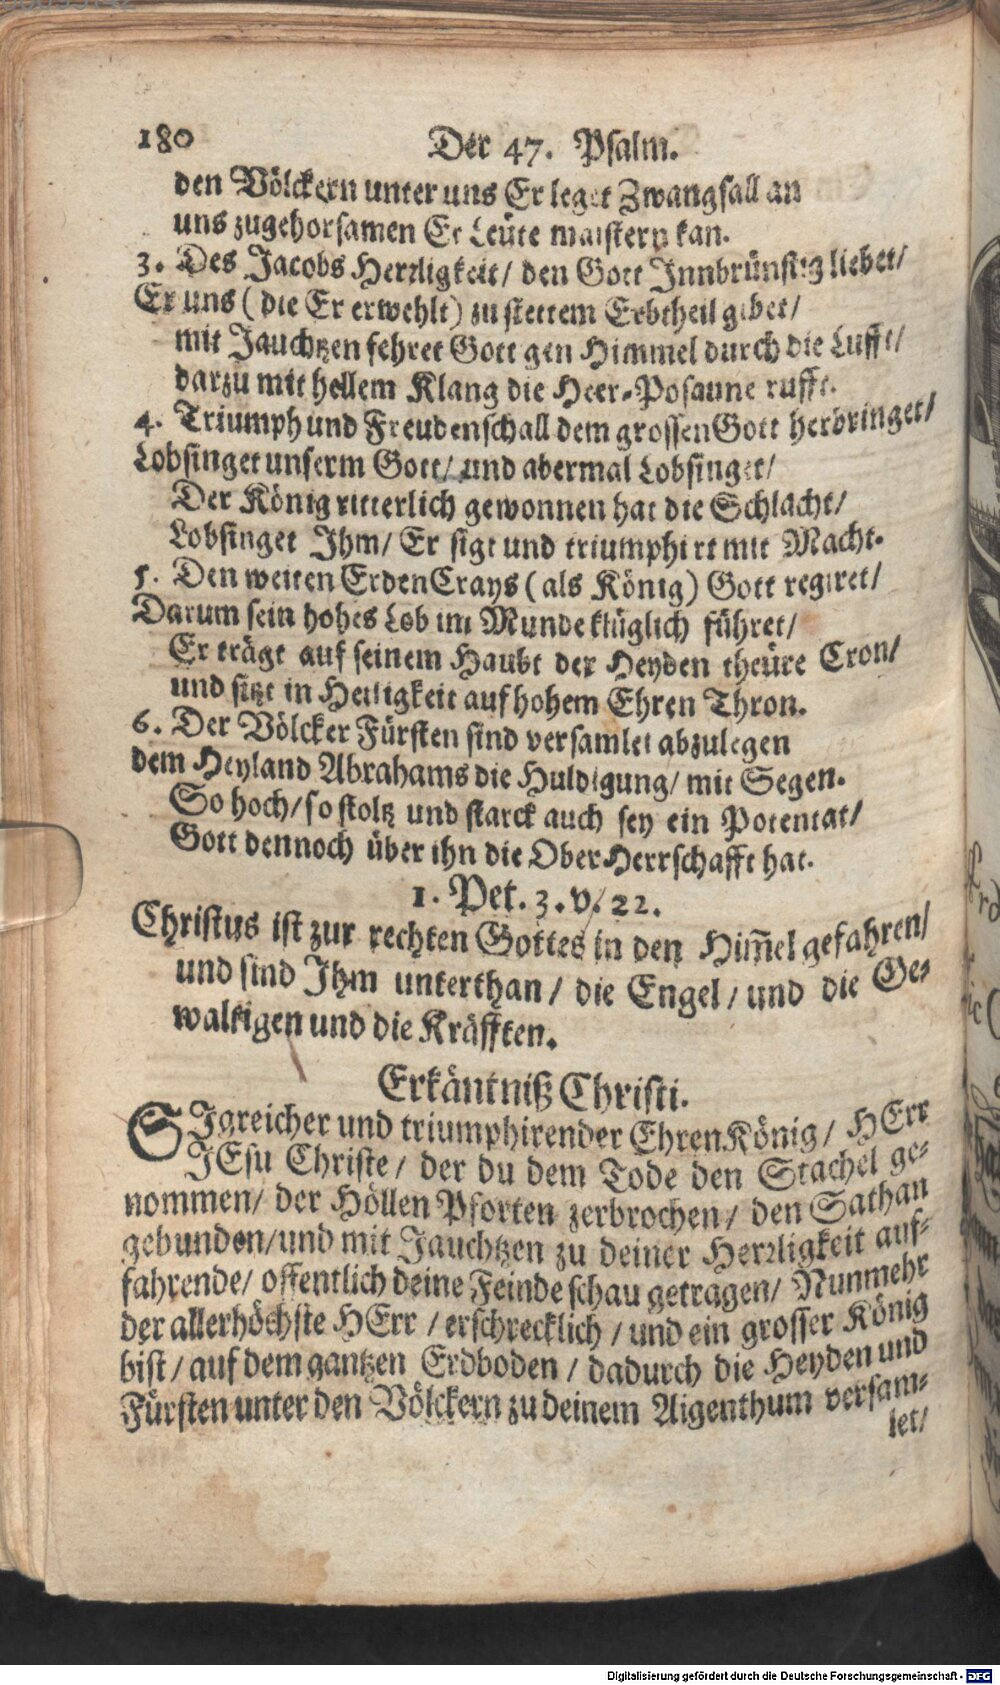 180
Der 47. Psalm.
den Völckern unter uns Er leget Zwangsall an
uns zugehorsamen Er Leüte maistern kan.
3. Des Jacobs Herꝛligkeit/ den Gott Innbrünstig liebet/
Er uns (die Er erwehlt) zu stettem Erbtheil gibet/
mit Jauchtzen fehret Gott gen Himmel durch die Lufft/
darzu mit hellem Klang die Heer-Posaune rufft.
4. Triumph und Freudenschall dem grossen Gott herbringet/
Lobsinget unserm Gott/ und abermal Lobsinget/
Der König ritterlich gewonnen hat die Schlacht/
Lobsinget Ihm/ Er sigt und triumphirt mit Macht.
5. Den weiten ErdenCrays (als König) Gott regiret/
Darum sein hohes Lob im Munde klüglich führet/
Er trägt auf seinem Haubt der Heyden theüre Cron/
und sitzt in Heiligkeit auf hohem Ehren Thron.
6. Der Völcker Fürsten sind versamlet abzulegen
dem Heyland Abrahams die Huldigung/ mit Segen.
So hoch/ so stoltz und starck auch sey ein Potentat/
Gott dennoch über ihn die OberHerrschafft hat.
1. Pet. 3. v. 22.
Christus ist zur rechten Gottes in den Him̃el gefahren/
und sind Ihm unterthan/ die Engel/ und die Ge-
waltigen und die Kräfften.
Erkäntniß Christi.
SIgreicher und triumphirender EhrenKönig/ HErr
JEsu Christe/ der du dem Tode den Stachel ge-
nommen/ der Höllen Pforten zerbrochen/ den Sathan
gebunden/und mit Jauchtzen zu deiner Herꝛligkeit auf-
fahrende/ offentlich deine Feinde schau getragen/ Nunmehr
der allerhöchste HErr/ erschrecklich/ und ein grosser König
bist/ auf dem gantzen Erdboden/ dadurch die Heyden und
Fürsten unter den Völckern zu deinem Aigenthum versam-
let/
Digitalisierung gefördert durch die Deutsche Forschungsgemeinschaft - DFG